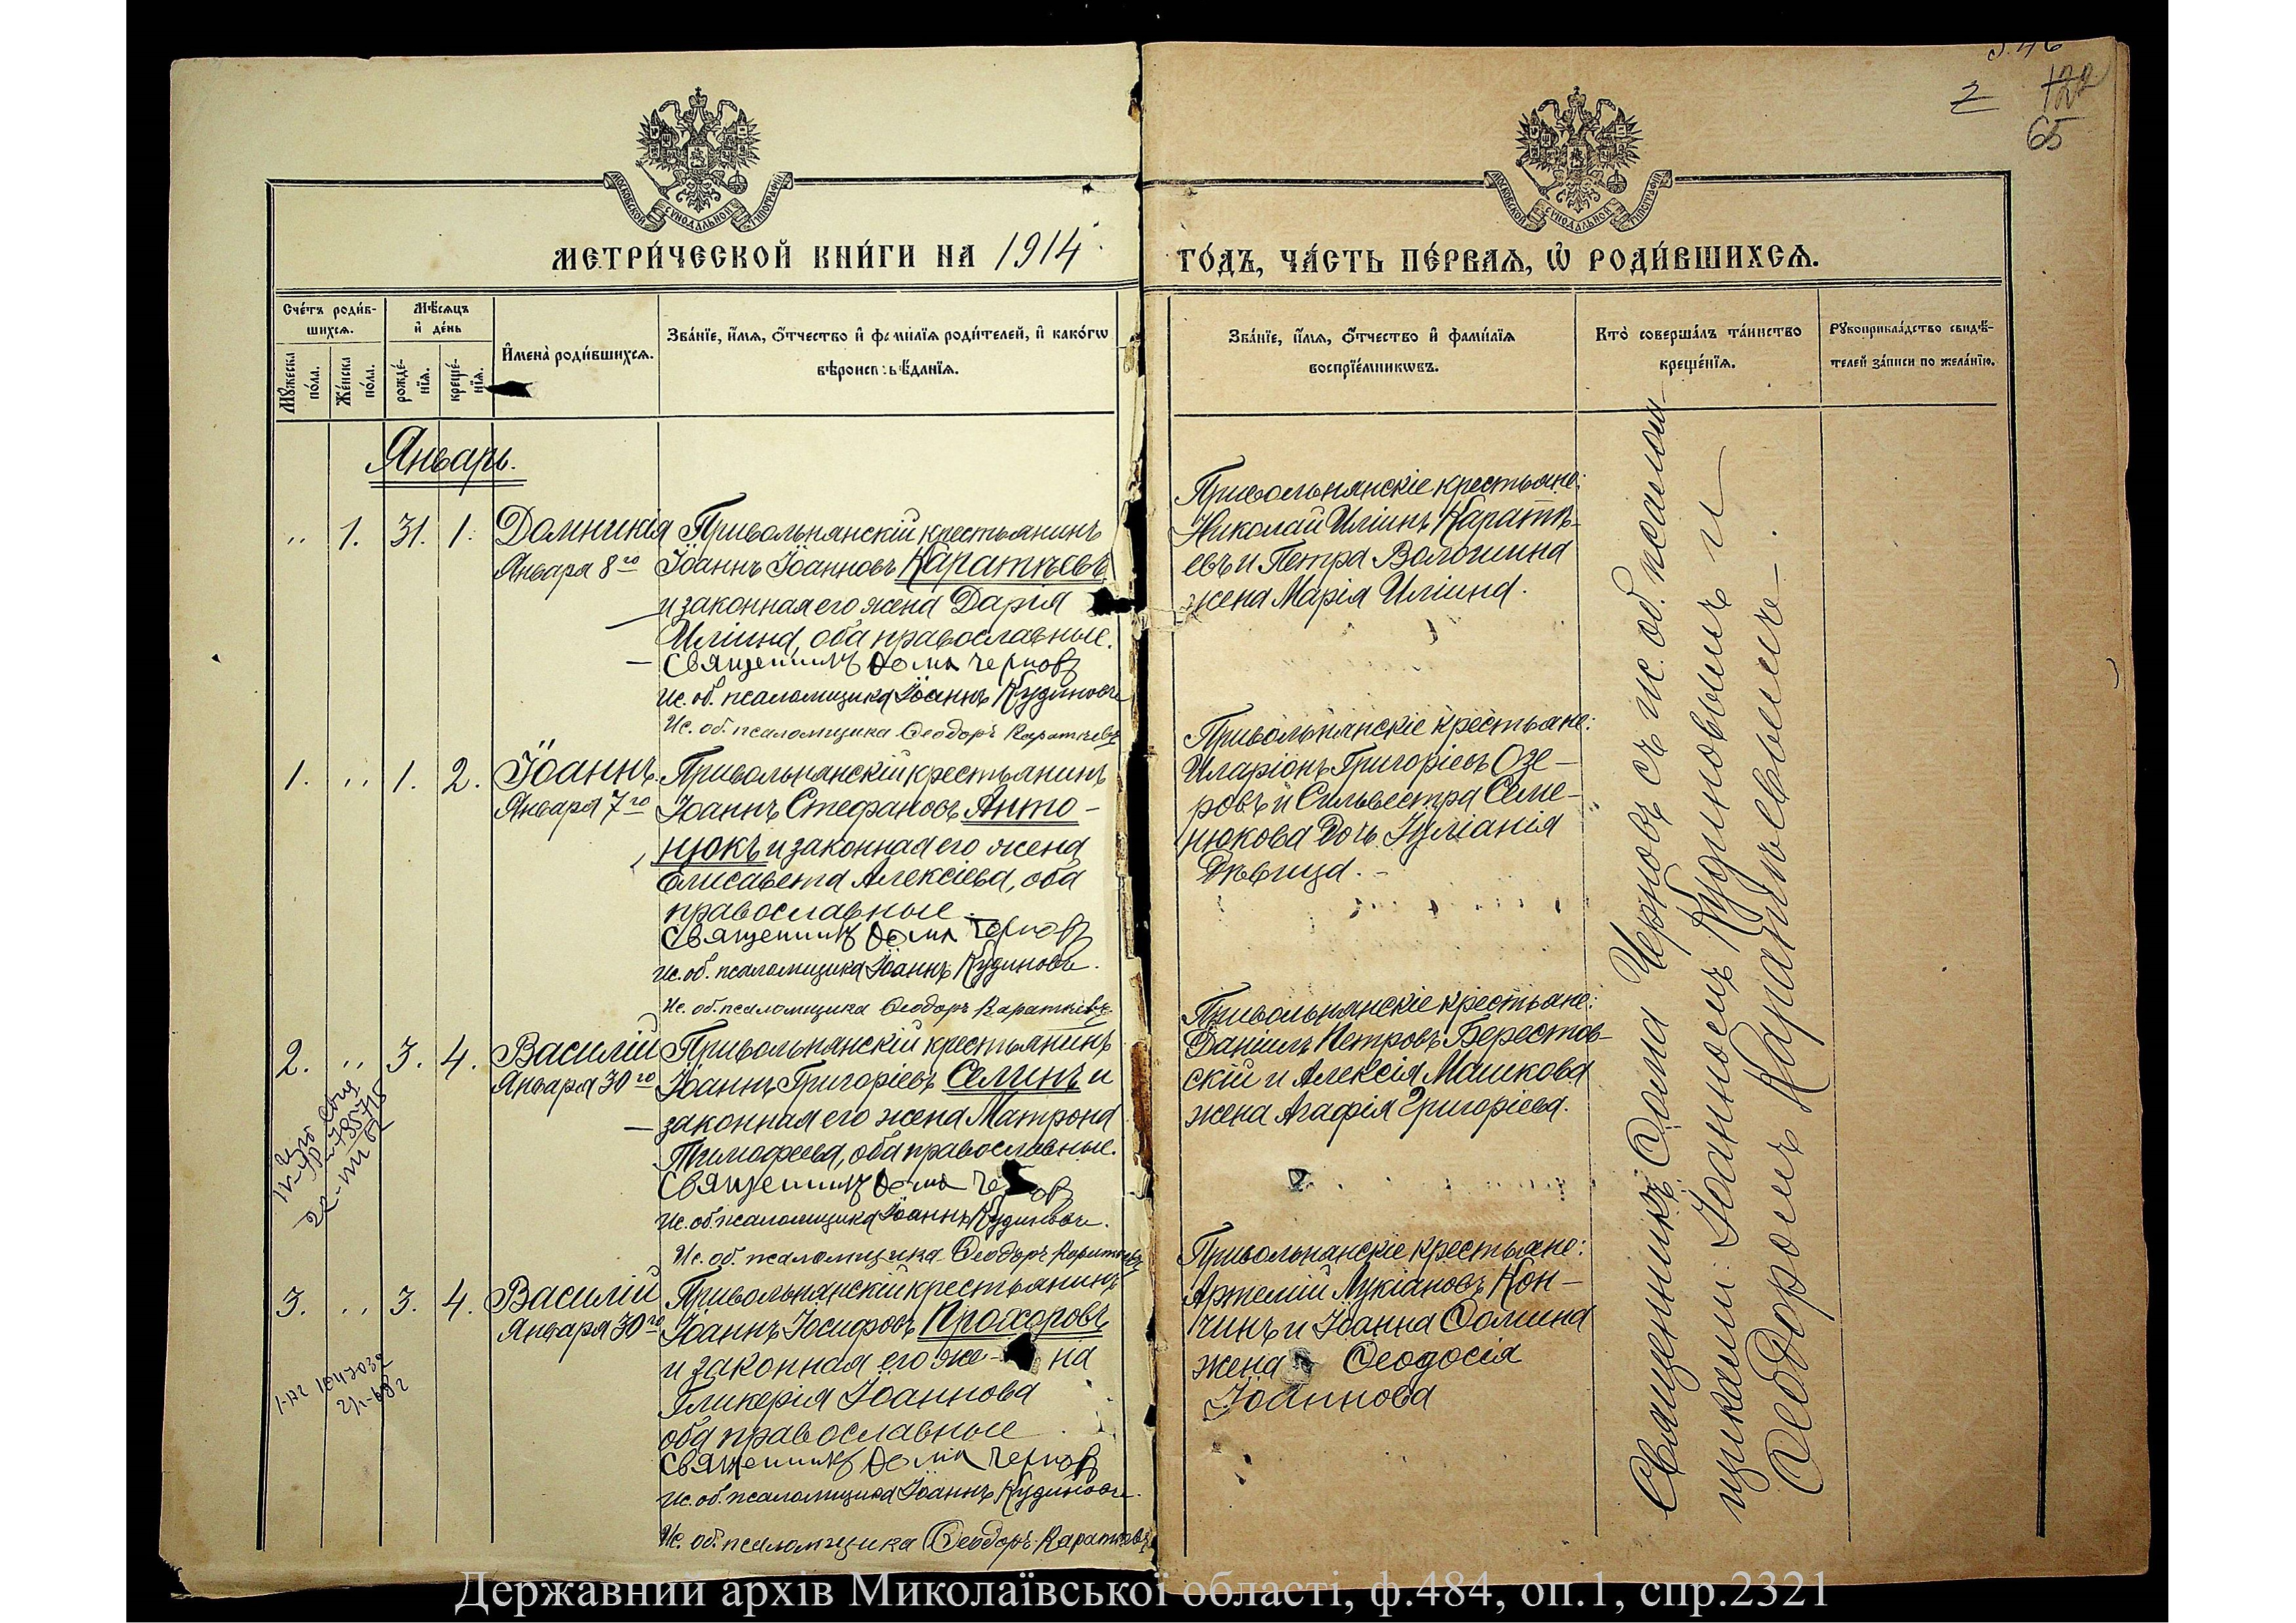 З. 46
2
122
65
МОСКОВСКОЙ СУНОДАЛЬНОЙ ТИПОГРАФІИ
МОСКОВСКОЙ СУНОДАЛЬНОЙ ТИПОГРАФІИ
МЕТРИ́ЧЕСКОЙ КНИ́ГИ НА 1914
ГО́ДЪ, ЧА́СТЬ ПЕ́РВАѦ, Ѡ҆ РОДИ́ВШИХСѦ.
Сче́тъ роди́в-
шихсѧ.
Мꙋ́жеска по́ла.
Же́нска по́ла.
Мѣ́сѧцъ
и҆ де́нь
рожде́-
нїѧ.
креще́-
нїѧ.
И҆мена̀ роди́вшихсѧ.
Зва́нїе, и҆́мѧ, ѻ҆́тчество и҆ фами́лїѧ роди́телей, и҆ како́гѡ
вѣроисповѣ́данїѧ.
Зва́нїе, и҆́мѧ, ѻ҆́тчество и҆ фами́лїѧ
воспрїе́мникѡвъ.
Кто̀ соверша́лъ та́инство
креще́нїѧ.
Рꙋкоприкла́дство свидѣ́-
телей за́писи по жела́нїю.
Январь.
,, 1. 31. 1.
Домникія
Января 8го
Привольнянскій крестьянинъ
Іоаннъ Іоанновъ Каратѣевъ
и законная его жена Дарія
Иліина, оба православные.
Священникъ Ѳома Черновъ
Ис. об. псаломщика Іоаннъ Кудиновъ
Ис. об. псаломщика Ѳеодоръ Каратѣевъ
Привольнянскіе крестьяне:
Николай Иліинъ Каратѣ-
евъ и Петра Волошина
жена Марія Иліина.
1. ,, 1. 2.
Іоаннъ
Января 7го
Привольнянскій крестьянинъ
Іоаннъ Стефановъ Анто-
нюкъ и законная его жена
Елисавета Алексіева, оба
православные.
Священникъ Ѳома Черновъ
Ис. об. псаломщика Іоаннъ Кудиновъ.
Ис. об. псаломщика Ѳеодоръ Каратѣевъ
Привольнянскіе крестьяне:
Иларіонъ Григоріевъ Озе-
ровъ и Сильвестра Семе-
нюкова дочь Іуліанія
Дѣвица.
2. ,, 3. 4.
Василій
Января 30го
Привольнянскій крестьянинъ
Іоаннъ Григоріевъ Селинъ и
законная его жена Матрона
Тимофеева, оба православные.
Священникъ Ѳома Черновъ
Ис. об. псаломщика Іоаннъ Кудиновъ.
Ис. об. псаломщика Ѳеодоръ Каратѣевъ
Привольнянскіе крестьяне:
Даніилъ Петровъ Берестов-
скій и Алексія Машкова
жена Агафія Григоріева.
3. ,, 3. 4.
Василій
Января 30го
Привольнянскій крестьянинъ
Іоаннъ Іосифовъ Прохоровъ
и законная его же- на
Гликерія Іоаннова
оба православные
Священникъ Ѳома Черновъ
Ис. об. псаломщика Іоаннъ Кудиновъ.
Ис. об. псаломщика Ѳеодоръ Каратѣевъ
Привольнянскіе крестьяне:
Артемій Лукіановъ Кон-
чинъ и Іоанна Ѳомина
жена Ѳеодосія
Іоаннова
Священникъ Ѳома Черновъ съ ис. об. псалом-
щиками: Іоанномъ Кудиновымъ и
Ѳеодоромъ Каратѣевымъ.
Державний архів Миколаївської області, ф.484, оп.1, спр.2321